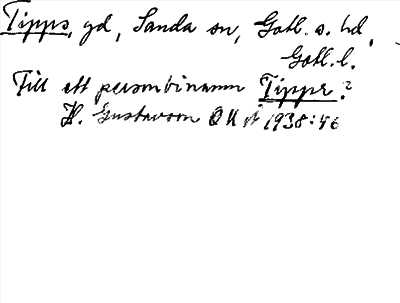 Tipps, gd, Sanda sn, Gotl. s. hd,
Gotl. l.
Till ett personbinamn Tippr?
H. Gustavson 1938:46